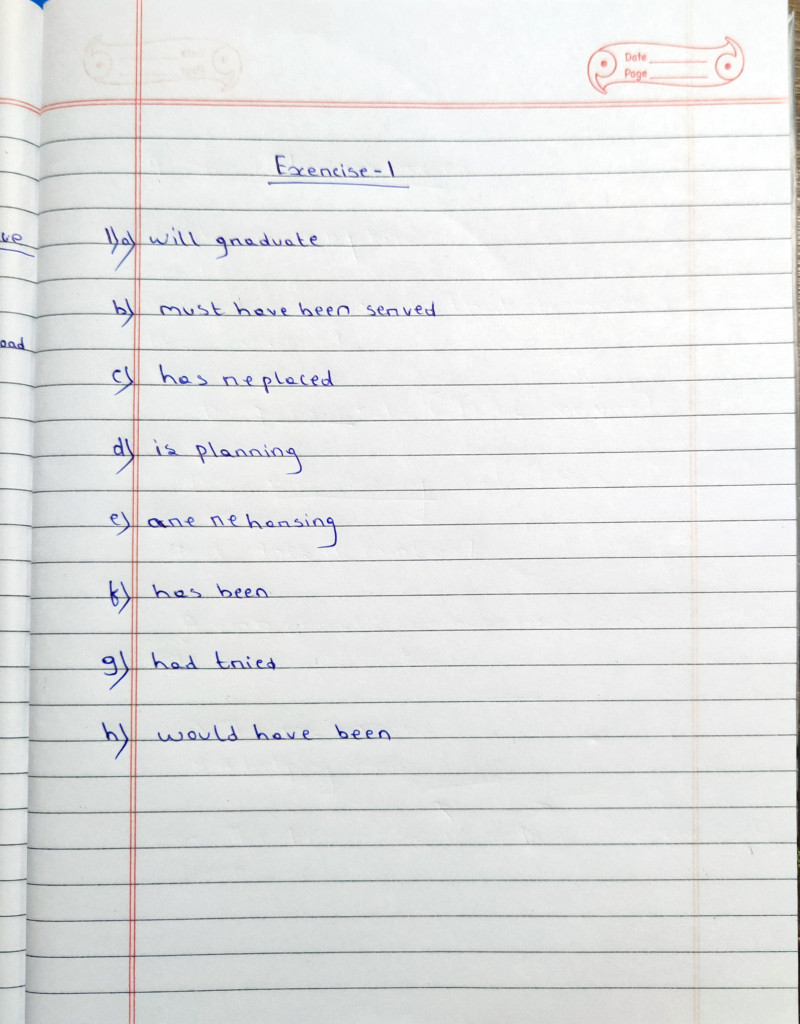 Date
Page
Exercise-1
1)a) will graduate
b) must have been served
c) has replaced
d) is planning
e) are rehorsing
f) has been
g) had tried
h) would have been